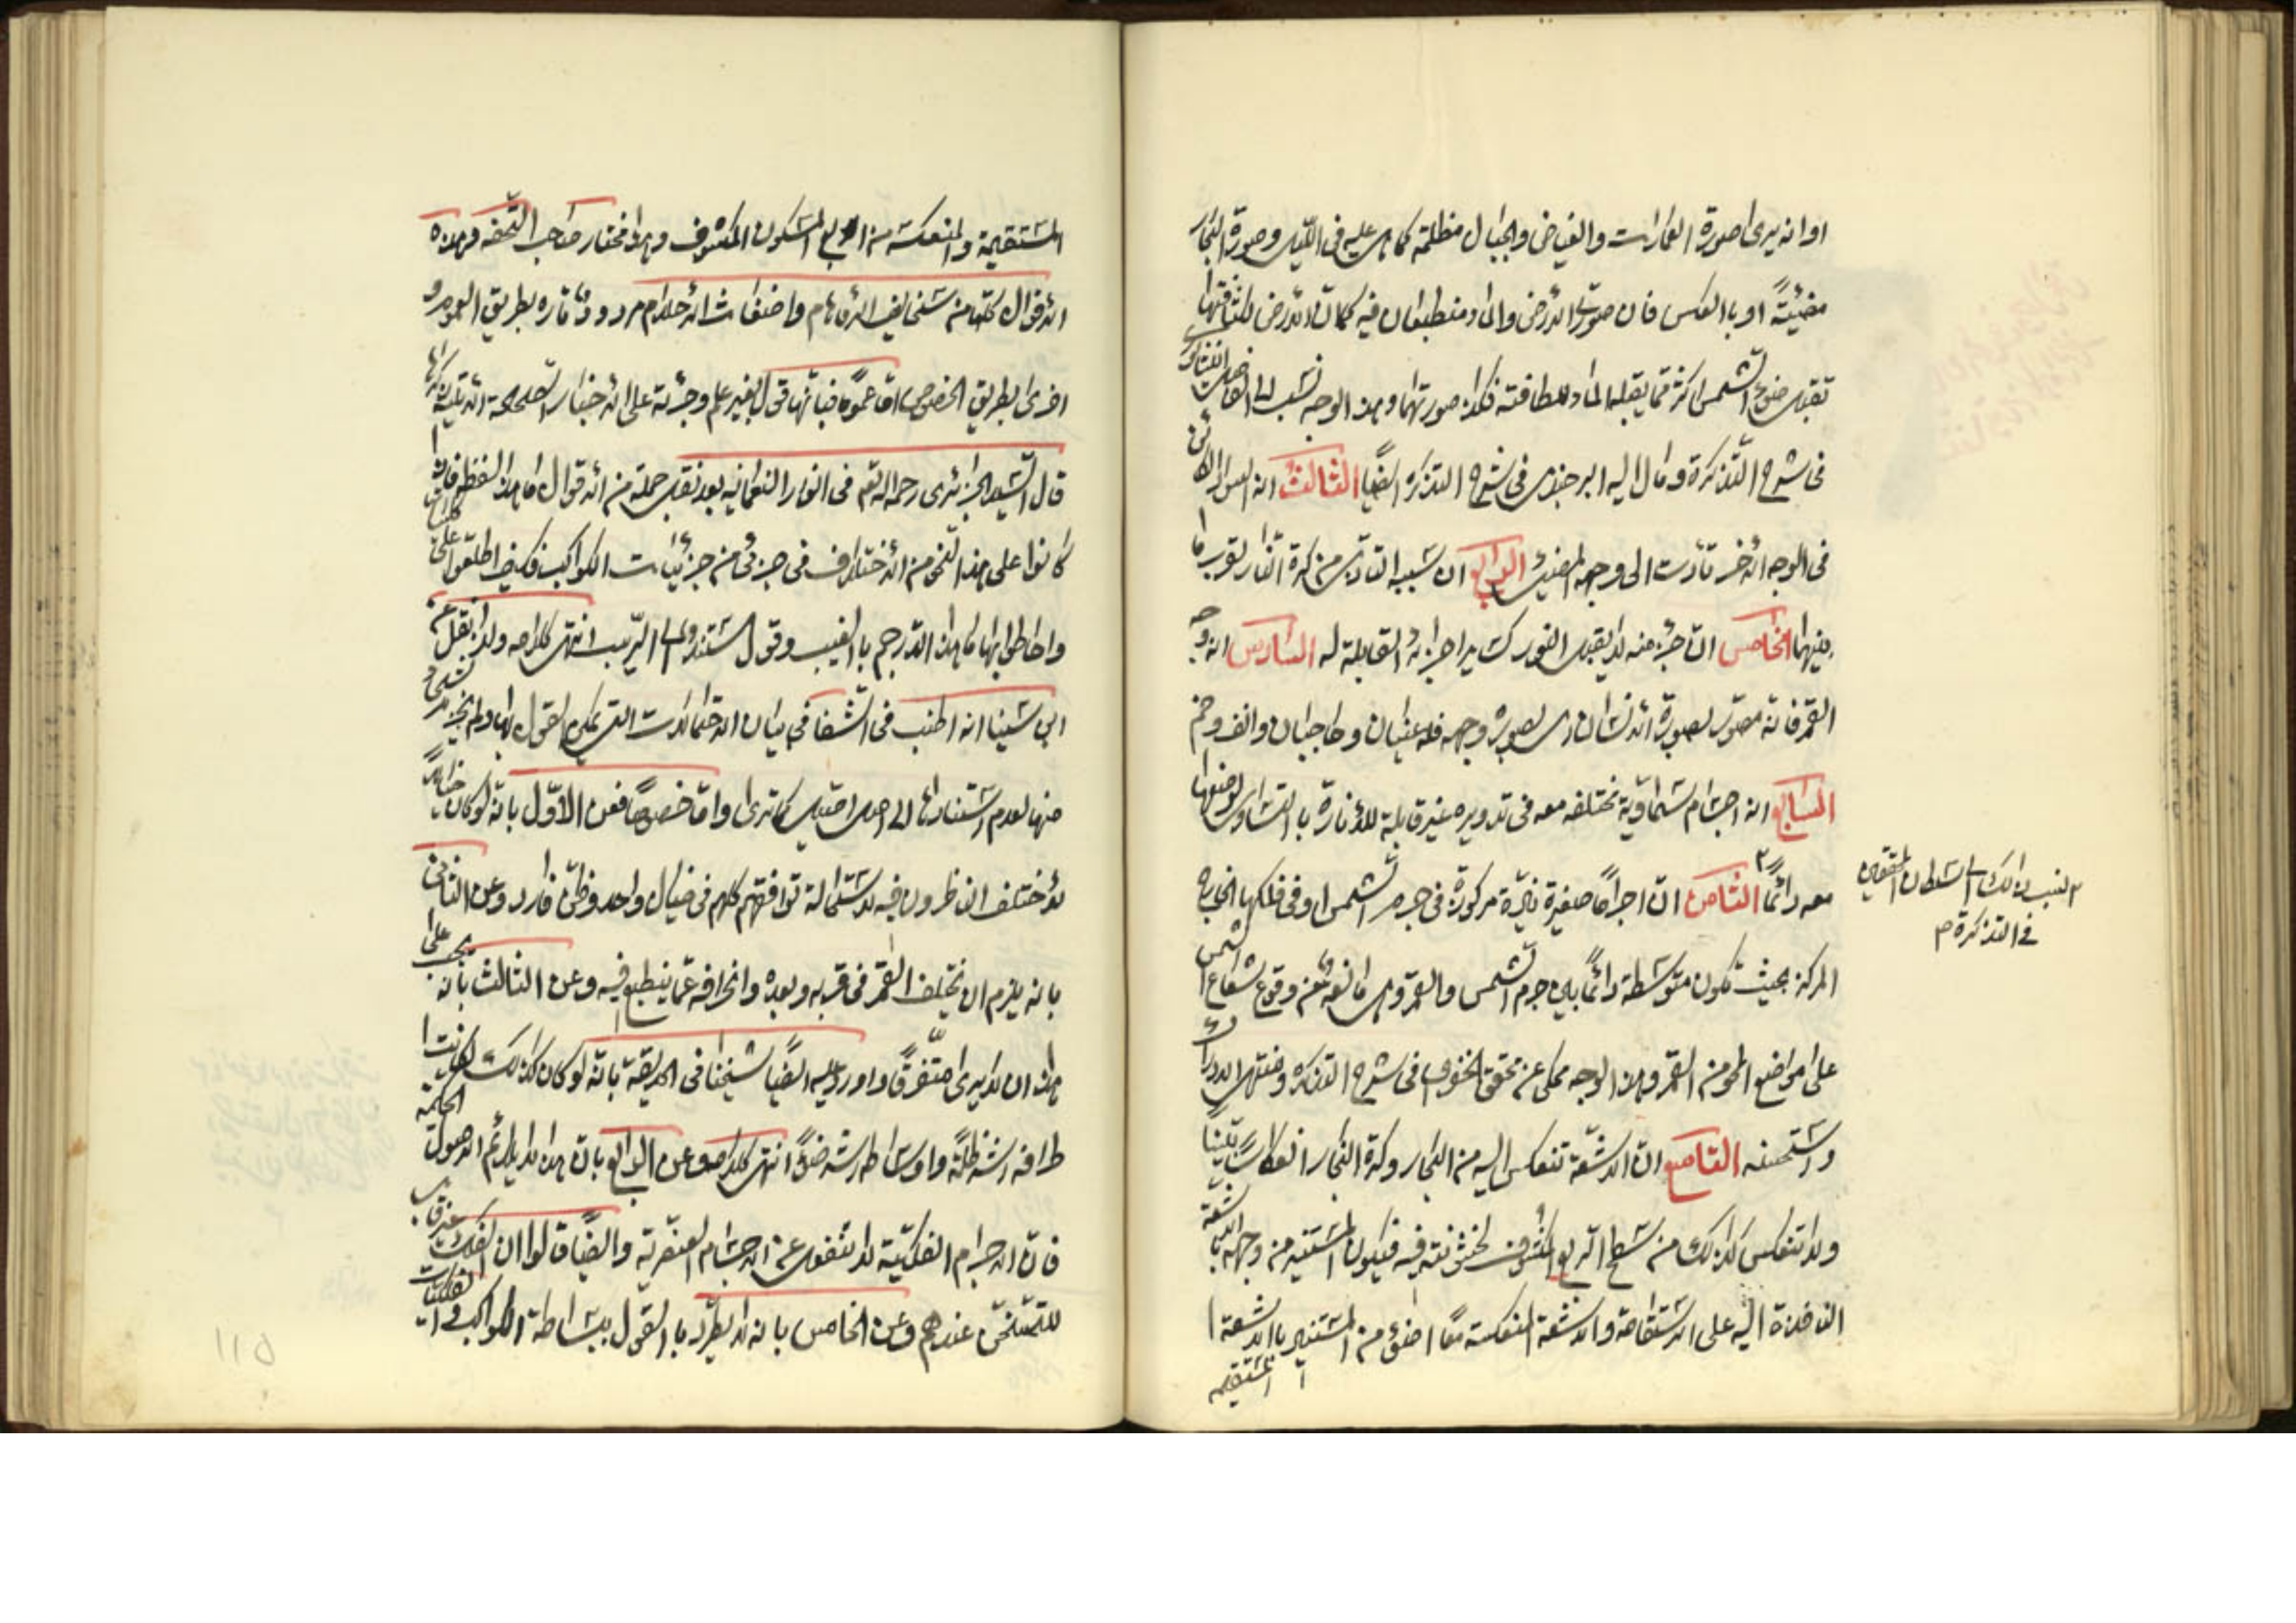 او انه يرى صورة العمارات والغياض والجبال مظلمة كما هى عليه فى الليل وصورة البحار
مضيئة او بالعكس فان صورتى الارض والماء منطبعان فيه كما ان الارض لكثافتها
تقبل ضوء الشمس اكثر مما يقبله الماء للطافته فكذا صورتهما وهذا الوجه نسب الى الفاضل النيشابورى
فى شرح التذكرة ومال اليه البرجندى فى شرح التذكرة ايضًا الثالث انه السواد الكائن
فى الوجه الاخر تأدت الى وجهه المضيئ الرابع ان سببه التأدى من كرة النار لقرب ما
بينهما الخامس ان جزء منه لا يقبل النور كساير اجزائه القابلة له السادس انه وجه
القمر فانه مصور بصورة الانسان اى بصورة وجهه فله عينان وحاجبان وانف وفم
السابع انه اجسام سماوية مختلفه معه فى تدويره غير قابلة للانارة بالتساوى لوضعها
معه دائمًا الثامن ان اجرامًا صغيرة نيرة مركوزة فى جرم الشمس او فى فلكها الخارج
المركز بحيث تكون متوسطة دائمًا بين جرم الشمس والقمر وهى مانعة عن وقوع شعاع الشمس
على مواضع المحو من القمر وهذا الوجه محكى عن محقق الخفرى فى شرح التذكرة
واستحسنه التاسع ان الاشعة تنعكس اليه من البخار وكرة البخار انعكاسًا بينًا
ولا تنعكس كذلك من سطح الربع المكشوف لخشونته فيكون المستنير من وجهه بالاشعة
النافذة اليه على الاستقامة والاشعة المنعكسة معًا اضوء من المستنير بالاشعة
المستقيمه
٣ نسب ذالك الى سلطان المحققين
فى التذكرة م
المستقيمة والمنعكسة من الربع المسكون المكشوف وهو مختار صاحب التحفه وهذه
الاقوال كلها من سخايف الاوهام واضغاث الاحلام مردودة تارة بطريق العموم و
اخرى بطريق الخصوص اما عمومًا فبانها قول بغير علم وجرئة على الاخبار
قال السيد الجزائرى رحمه الله فى انوار النعمانيه بعد نقل جملة من الاقوال ما هذا لفظه فاذا
كانوا على هذا النحو من الاختلاف فى جزئى من جزئيات الكواكب فكيف اطلعوا على كليات
واحاطوا بها ما هذا الا رجم بالغيب وقول مستند الى الريب انتهى كلامه ولذا نقل عن
ابن سينا انه اطنب فى الشفا فى بيان الاحتمالات التى يمكن القول بها ولم يجزم بشئ
منها لعدم استنادها الى اصل اصيل كما ترى واما خصوصًا فعن الاوّل بانه لو كان خيالًا
لاختلف الناظرون فيه لاستحالة توافقهم كلهم فى خيال واحد وظن فارد وعن الثانى
بانه يلزم ان يختلف القمر فى قربه وبعده وانحرافه عما ينطبع فيه وعن الثالث بانه يجب على
هذا ان لا يرى متفرقًا واورد عليه ايضًا شيخنا فى الحديقة بانه لو كان كذالك لكانت
اطرافه اشد ظلمة واوساطه اشد ضوءًا انتهى كلامه وعن الرابع بان هذا لا يلائم الاصول الحكمية
فان الاجرام الفلكية لا تنفعل عن الاجسام العنصرية وايضًا قالوا ان الفلك غير قابل
للتسخن عندهم وعن الخامس بانه لا يطرد بالقول ببساطة الكواكب و الفلكيات
١١٥